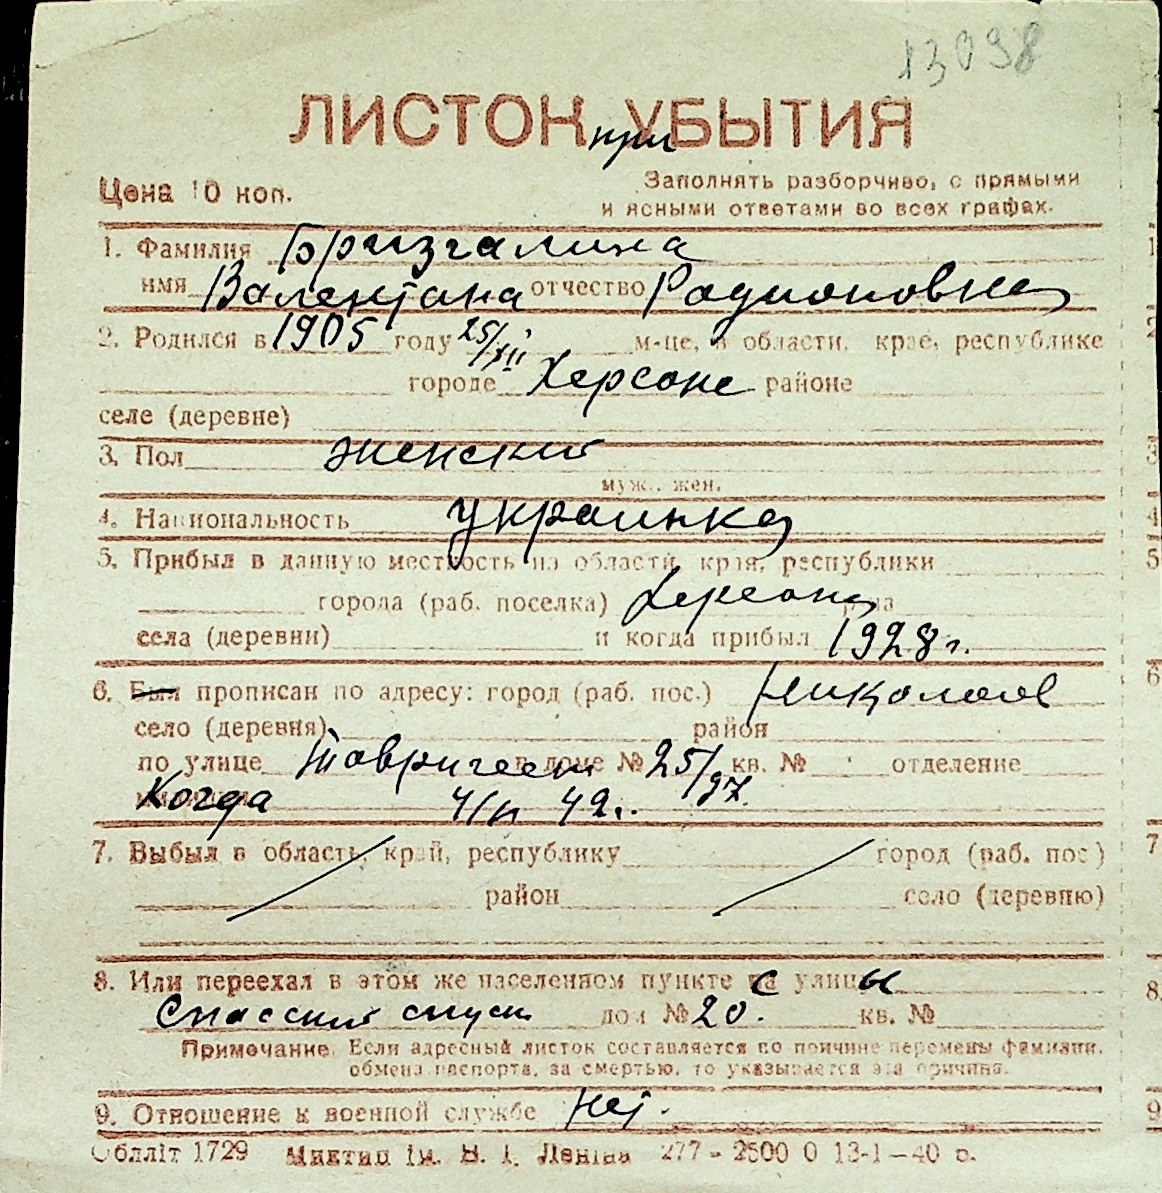 13098
ЛИСТОК при УБЫТИЯ
Цена 10 коп.
Заполнять разборчиво, с прямыми
и ясными ответами во всех графах.
1. Фамилия Бризгалина
имя Валентана отчество Радионовна
2. Родился в 1905 году 25/XII м-це, в области, крае, республике
городе Херсоне районе
селе (деревне)
3. Пол женский
муж., жен.
4. Национальность украинка
5. Прибыл в данную местность из области, края, республики
города (раб. поселка) Херсона р-на
села (деревни) и когда прибыл 1928 г.
6. Был прописан по адресу: город (раб. пос.) Николаев
село (деревня) район
по улице Таврическ в доме № 25/97 кв. № отделение
Когда 4/IV 42 г.
7. Выбыл в область, край, республику город (раб. пос)
район село (деревню)
8. Или переехал в этом же населенном пункте с улицы
Спасский спуск дом № 20. кв. №
Примечание. Если адресный листок составляется по причине перемены фамилии,
обмена паспорта, за смертью, то указывается эта причина.
9. Отношение к военной службе нет.
Облліт 1729 Миктип ім. В. І. Леніна 277 – 2500 0 13-1–40 р.